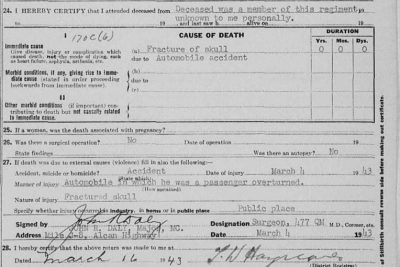 24. I HEREBY CERTIFY that I attended deceased from Deceased was a member of this regiment
unknown to me personally.
and last saw h alive on 19
I
170C(6)
CAUSE OF DEATH
DURATION
Yrs. Mos. Dys.
Immediate cause
Give disease, injury or complication which caused death, not the mode of dying, such as heart failure, asphyxia, asthenia, etc.
(a) Fracture of skull 0 0 0
due to Automobile accident
Morbid conditions, if any, giving rise to immediate cause (stated in order proceeding backwards from immediate cause).
(b)
due to
(c)
II
Other morbid conditions (if important) contributing to death but not causally related to immediate cause.
25. If a woman, was the death associated with pregnancy?
26. Was there a surgical operation? No Date of operation 19
State findings Was there an autopsy? No
27. If death was due to external causes (violence) fill in also the following:—
Accident, suicide or homicide? Accident Date of injury March 4 1943
(State which)
Manner of injury Automobile in which he was a passenger overturned.
(How sustained)
Nature of injury Fractured skull
Specify whether injury occurred in industry, in home or in public place Public place
Signed by John R Daly Designation Surgeon, 477 QM M.D., Coroner, etc.
JOHN R. DALY, Major, MC.
Address Mile Alcan Highway Date March 4 1943
28. I hereby certify that the above return was made to me at
Dated March 16 1943